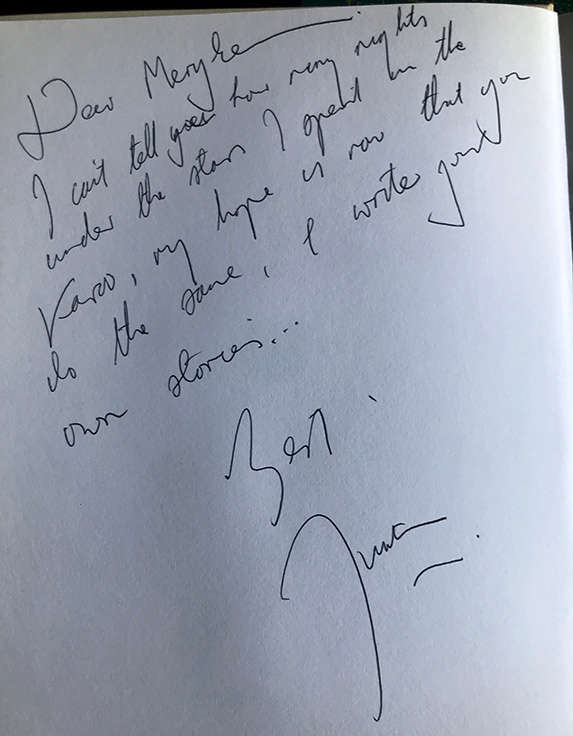 Dear Meryl
I can't tell you how many nights
under the stars I spent in the
Karoo, my hope is now that you
do the same, & write your
own stories...
Best